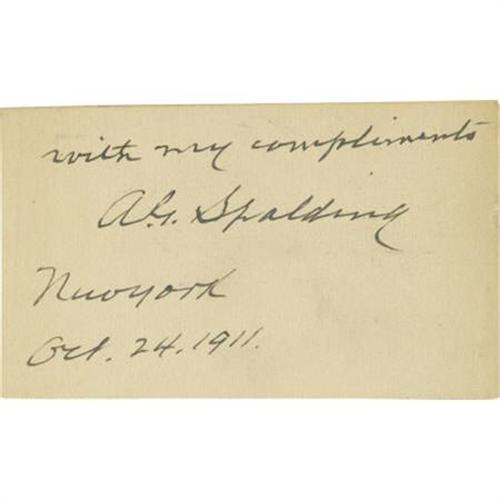 with my compliments
A.G. Spalding
New york
Oct. 24. 1911.